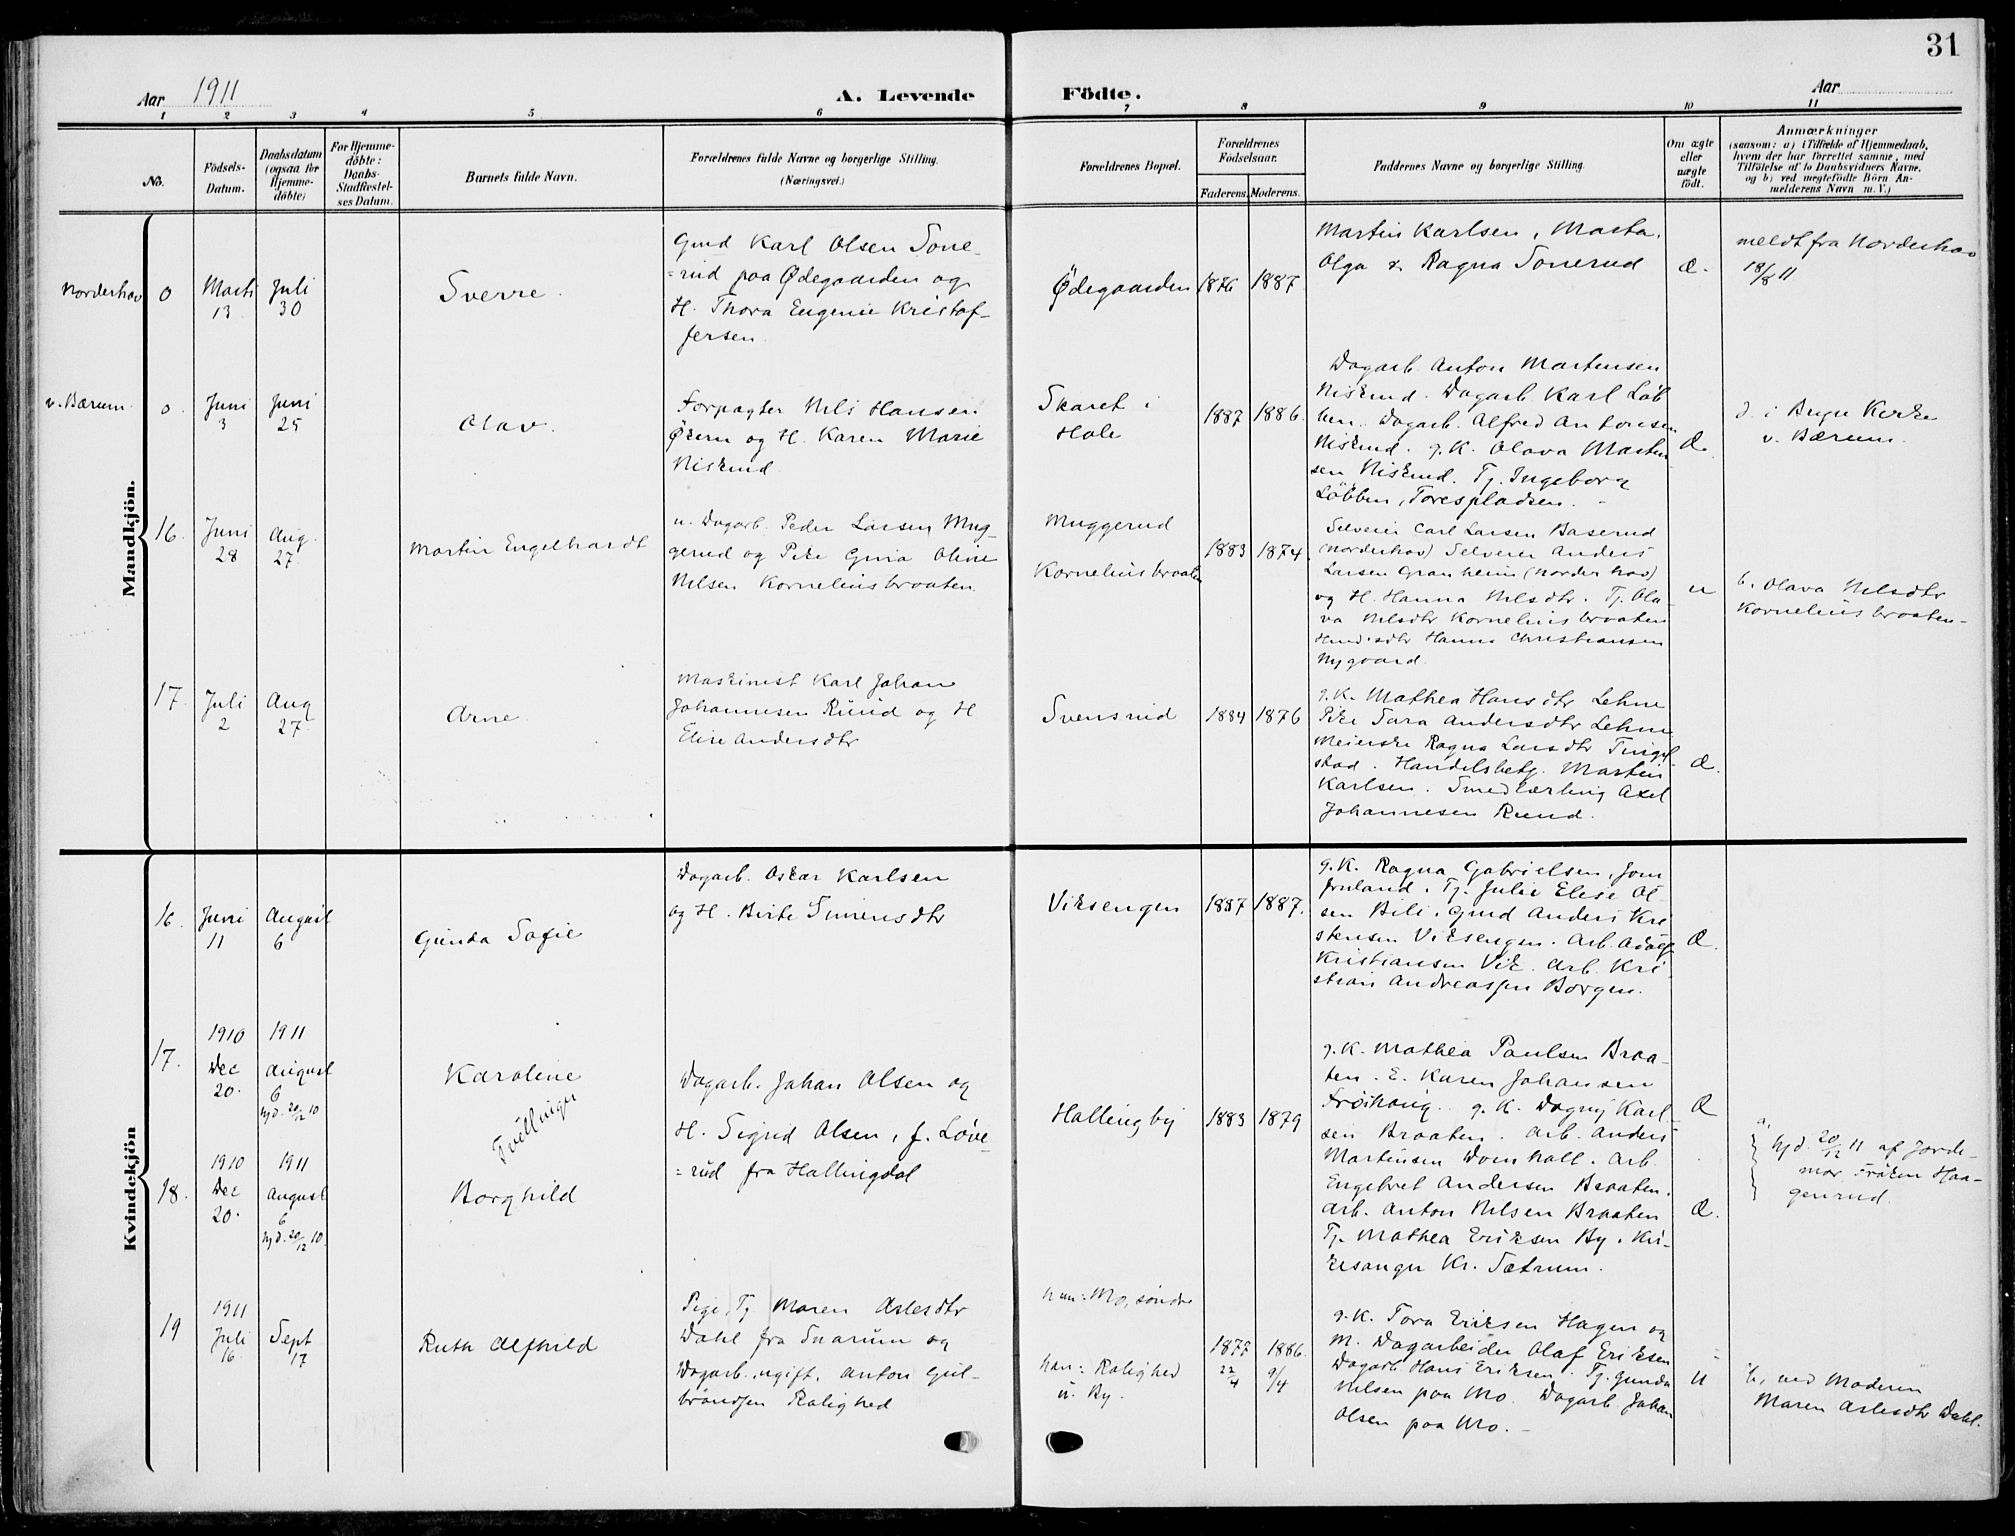 31
Aar 1911
A. Levende Födte.
Aar
1 2 3 4 5 6 7 8 9 10 11
No.
Födsels-
Datum.
Daabsdatum
(ogsaa for
Hjemme-
döbte)
For Hjemme-
döbte:
Daabs-
Stadfæstel-
ses Datum.
Barnets fulde Navn.
Forældrenes fulde Navne og borgerlige Stilling.
(Næringsvei.)
Forældrenes Bopæl.
Forældrenes
Födselsaar.
Faderens. Moderens.
Faddernes Navne og borgerlige Stilling.
Om ægte
eller
uægte
födt.
Anmærkninger
(saasom: a) i Tilfælde af Hjemmedaab,
hvem der har forrettet samme, med
Tilföielse af to Daabsvidners Navne,
og b) ved uægtefödte Börn An-
melderens Navn m. V.)
Mandkjön.
Norderhov 0
Marts
13
Juli
30
Sverre.
Gmd Karl Olsen Sone-
=rud paa Ødegaarden og
H. Thora Eugenie Kristof-
fersen.
Ødegaarden
1876 1887
Martin Karlsen, Marta,
Olga & Ragna Sonerud
Æ.
meldt fra Norderhov
18/8 11
v. Bærum. 0.
Juni
3
Juni
25
Olav.
Forpagter Nils Hansen
Økern og H. Karen Marie
Niskrud
Skaret i
Hole
1887 1886.
Dagarb. Anton Martinsen
Niskrud. Dagarb. Karl Løb-
ben. Dagarb. Alfred Antonsen
Niskrud. g.K. Olava Martin-
sen Niskrud. Tj. Ingeborg
Løbben, Torespladsen.
Æ.
d. i Bryn Kirke
v. Bærum.
16.
Juni
28
Aug.
27
Martin Engelhardt
u. Dagarb. Peder Larsen Mug-
gerud og Pike Gina Oline
Nilsen Korneliusbraaten.
Muggerud
Korneliusbraaten
1883 1874.
Selveier Carl Larsen Baserud
(Norderhov) Selveier Anders
Larsen Granheim (Norderhov)
og H. Hanna Nilsdtr. Tj. Ola-
va Nilsdtr Korneliusbraaten
Hanna Christiansen
Nygaard.
u
b. Olava Nilsdtr
Korneliusbraaten-
17.
Juli
2
Aug
27
Arne.
Maskinist Karl Johan
Johannesen Ruud og H
Elise Andersdtr
Svensrud
1884 1876
g.K. Mathea Hansdtr Lehne
Pike Sara Andersdtr Lehne
Meierske Ragna Larsdtr Tingel-
stad. Handelsbetj. Martin
Karlsen. Smedlærling Axel
Johannesen Ruud.
Æ.
Kvindekjön
16.
Juni
11
August
6
Gunda Sofie
Dagarb. Oskar Karlsen
og H. Birte Simensdtr
Viksengen
1887 1887.
g.K. Ragna Gabrielsen, Jom-
fruland. Tj. Julie Elise Ol-
sen Bili. Gmd Anders Kri-
stensen Viksengen. Arb. Adolf
Kristiansen Vik. Arb. Kri-
stian Andreassen Borgen.
Æ.
17.
1910
Dec
20.
1911
August
6
hjd. 20/12 10
Karoline
Tvillinger
Dagarb. Johan Olsen og
H. Sigrid Olsen, f. Løve-
=rud fra Hallingdal
Hallingby
1883 1879
g.K. Mathea Paulsen Braa-
ten. E. Karen Johansen
Frøihaug. g.K. Dagny Karl-
sen Braaten. Arb. Anders
Martinsen Domholt. Arb.
Engebret Andersen Braaten.
Arb. Anton Nilsen Braaten
Tj. Mathea Eriksen By. Kir-
kesanger Kr. Sætrum.
Æ
a,
hjd. 20/12 11 af Jorde-
mor Frøken Haa-
genrud.
18.
1910
Dec
20.
1911
August
6
hjd. 20/12 10.
Borghild
Æ.
19
1911
Juli
16.
Sept
17
Ruth Alfhild
Pige, Tj. Maren Aslesdtr
Dahl fra Snarum og
Dagarb. ugift. Anton Gul-
brandsen Rolighed
hun: Mo, søndre
han: Rolighed
u. By.
1877
22/4
1886.
9/4
g.K. Tora Eriksen Hagen og
M. Dagarbeider Olaf Eriksen
Dagarb Hans Eriksen. Tj. Gunda
Nilsen paa Mo. Dagarb. Johan
Olsen paa Mo.
u
b, ved Moderen
Maren Aslesdtr Dahl.